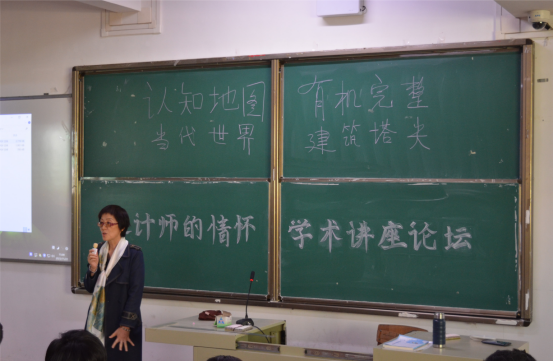 认知地图
当代世界
有机完整
建筑塔尖
计师的情怀
学术讲座论坛